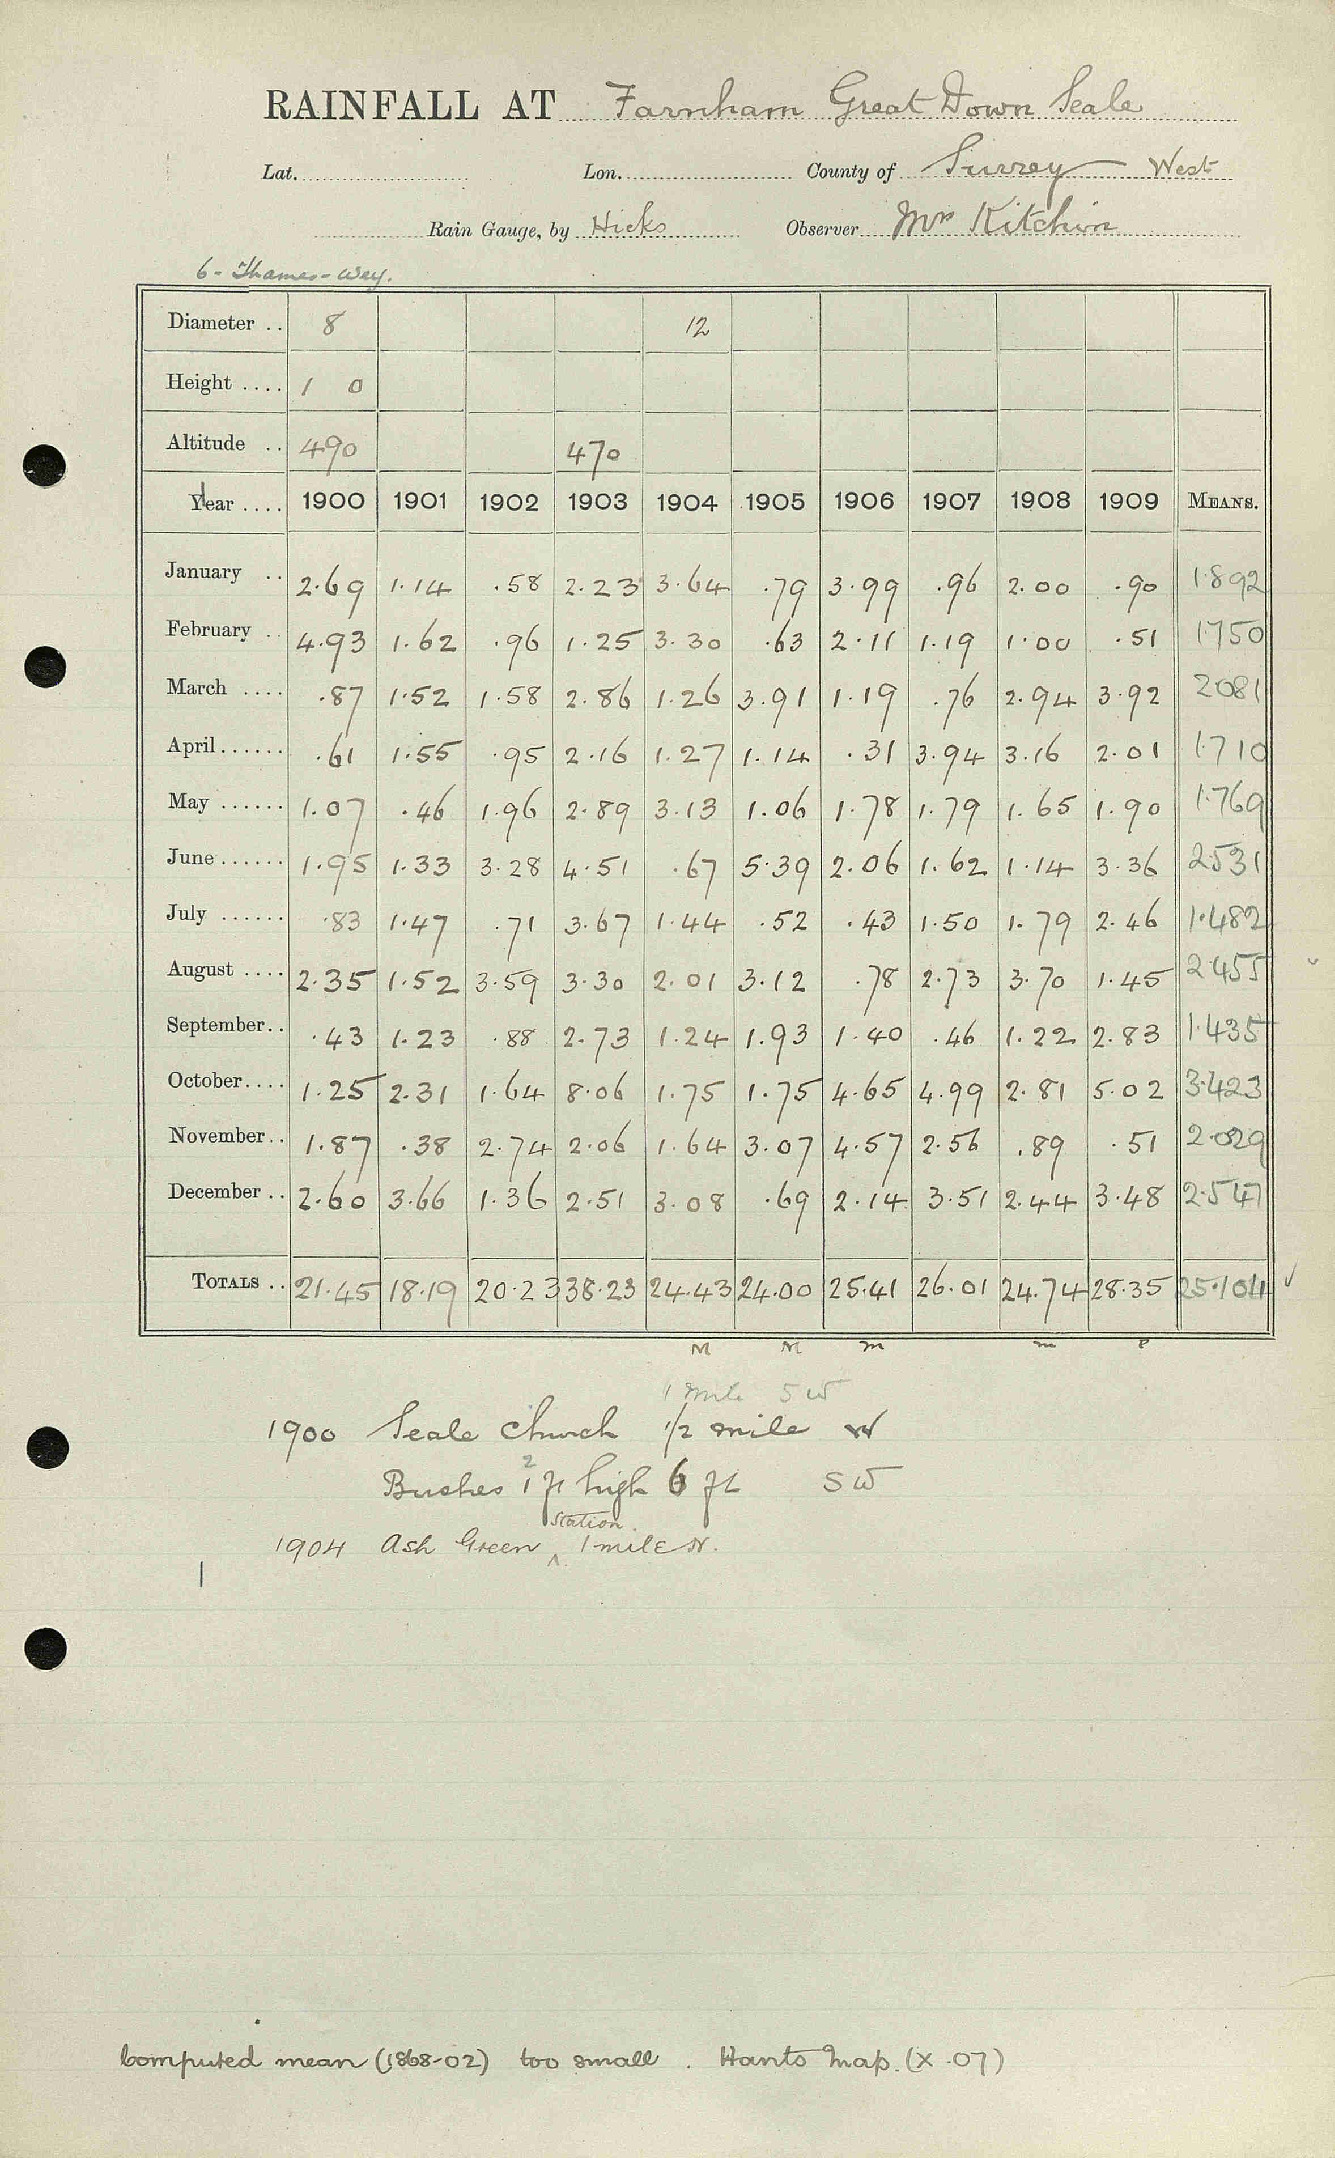 RAINFALL AT Farnham Great Down Seale
Lat. Lon. County of Surrey West
Rain Gauge, by Hicks Observer Mrs Kitchin
6 - Thames - Wey.
Diameter .. 8 12
Height .... 1 0
Altitude .. 490 470
Year .... 1900 1901 1902 1903 1904 1905 1906 1907 1908 1909 MEANS.
January .. 2.69 1.14 .58 2.23 3.64 .79 3.99 .96 2.00 .90 1.892
February .. 4.93 1.62 .96 1.25 3.30 .63 2.11 1.19 1.00 .51 1750
March .... .87 1.52 1.58 2.86 1.26 3.91 1.19 .76 2.94 3.92 2081
April...... .61 1.55 .95 2.16 1.27 1.14 .31 3.94 3.16 2.01 1.710
May ...... 1.07 .46 1.96 2.89 3.13 1.06 1.78 1.79 1.65 1.90 1.769
June...... 1.95 1.33 3.28 4.51 .67 5.39 2.06 1.62 1.14 3.36 2.531
July ...... .83 1.47 .71 3.67 1.44 .52 .43 1.50 1.79 2.46 1.482
August .... 2.35 1.52 3.59 3.30 2.01 3.12 .78 2.73 3.70 1.45 2.455
September.. .43 1.23 .88 2.73 1.24 1.93 1.40 .46 1.22 2.83 1.435
October.... 1.25 2.31 1.64 8.06 1.75 1.75 4.65 4.99 2.81 5.02 3.423
November.. 1.87 .38 2.74 2.06 1.64 3.07 4.57 2.56 .89 .51 2.029
December .. 2.60 3.66 1.36 2.51 3.08 .69 2.14 3.51 2.44 3.48 2.547
TOTALS .. 21.45 18.19 20.23 38.23 24.43 24.00 25.41 26.01 24.74 28.35 25.104
M M m m
1 mile SW
1900 Seale Church 1/2 mile W
2
Bushes 1 ft high 6 ft SW
Station
1904 Ash Green ^ 1 mile N.
Computed mean (1868-02) too small . Hants Map. (X .07)